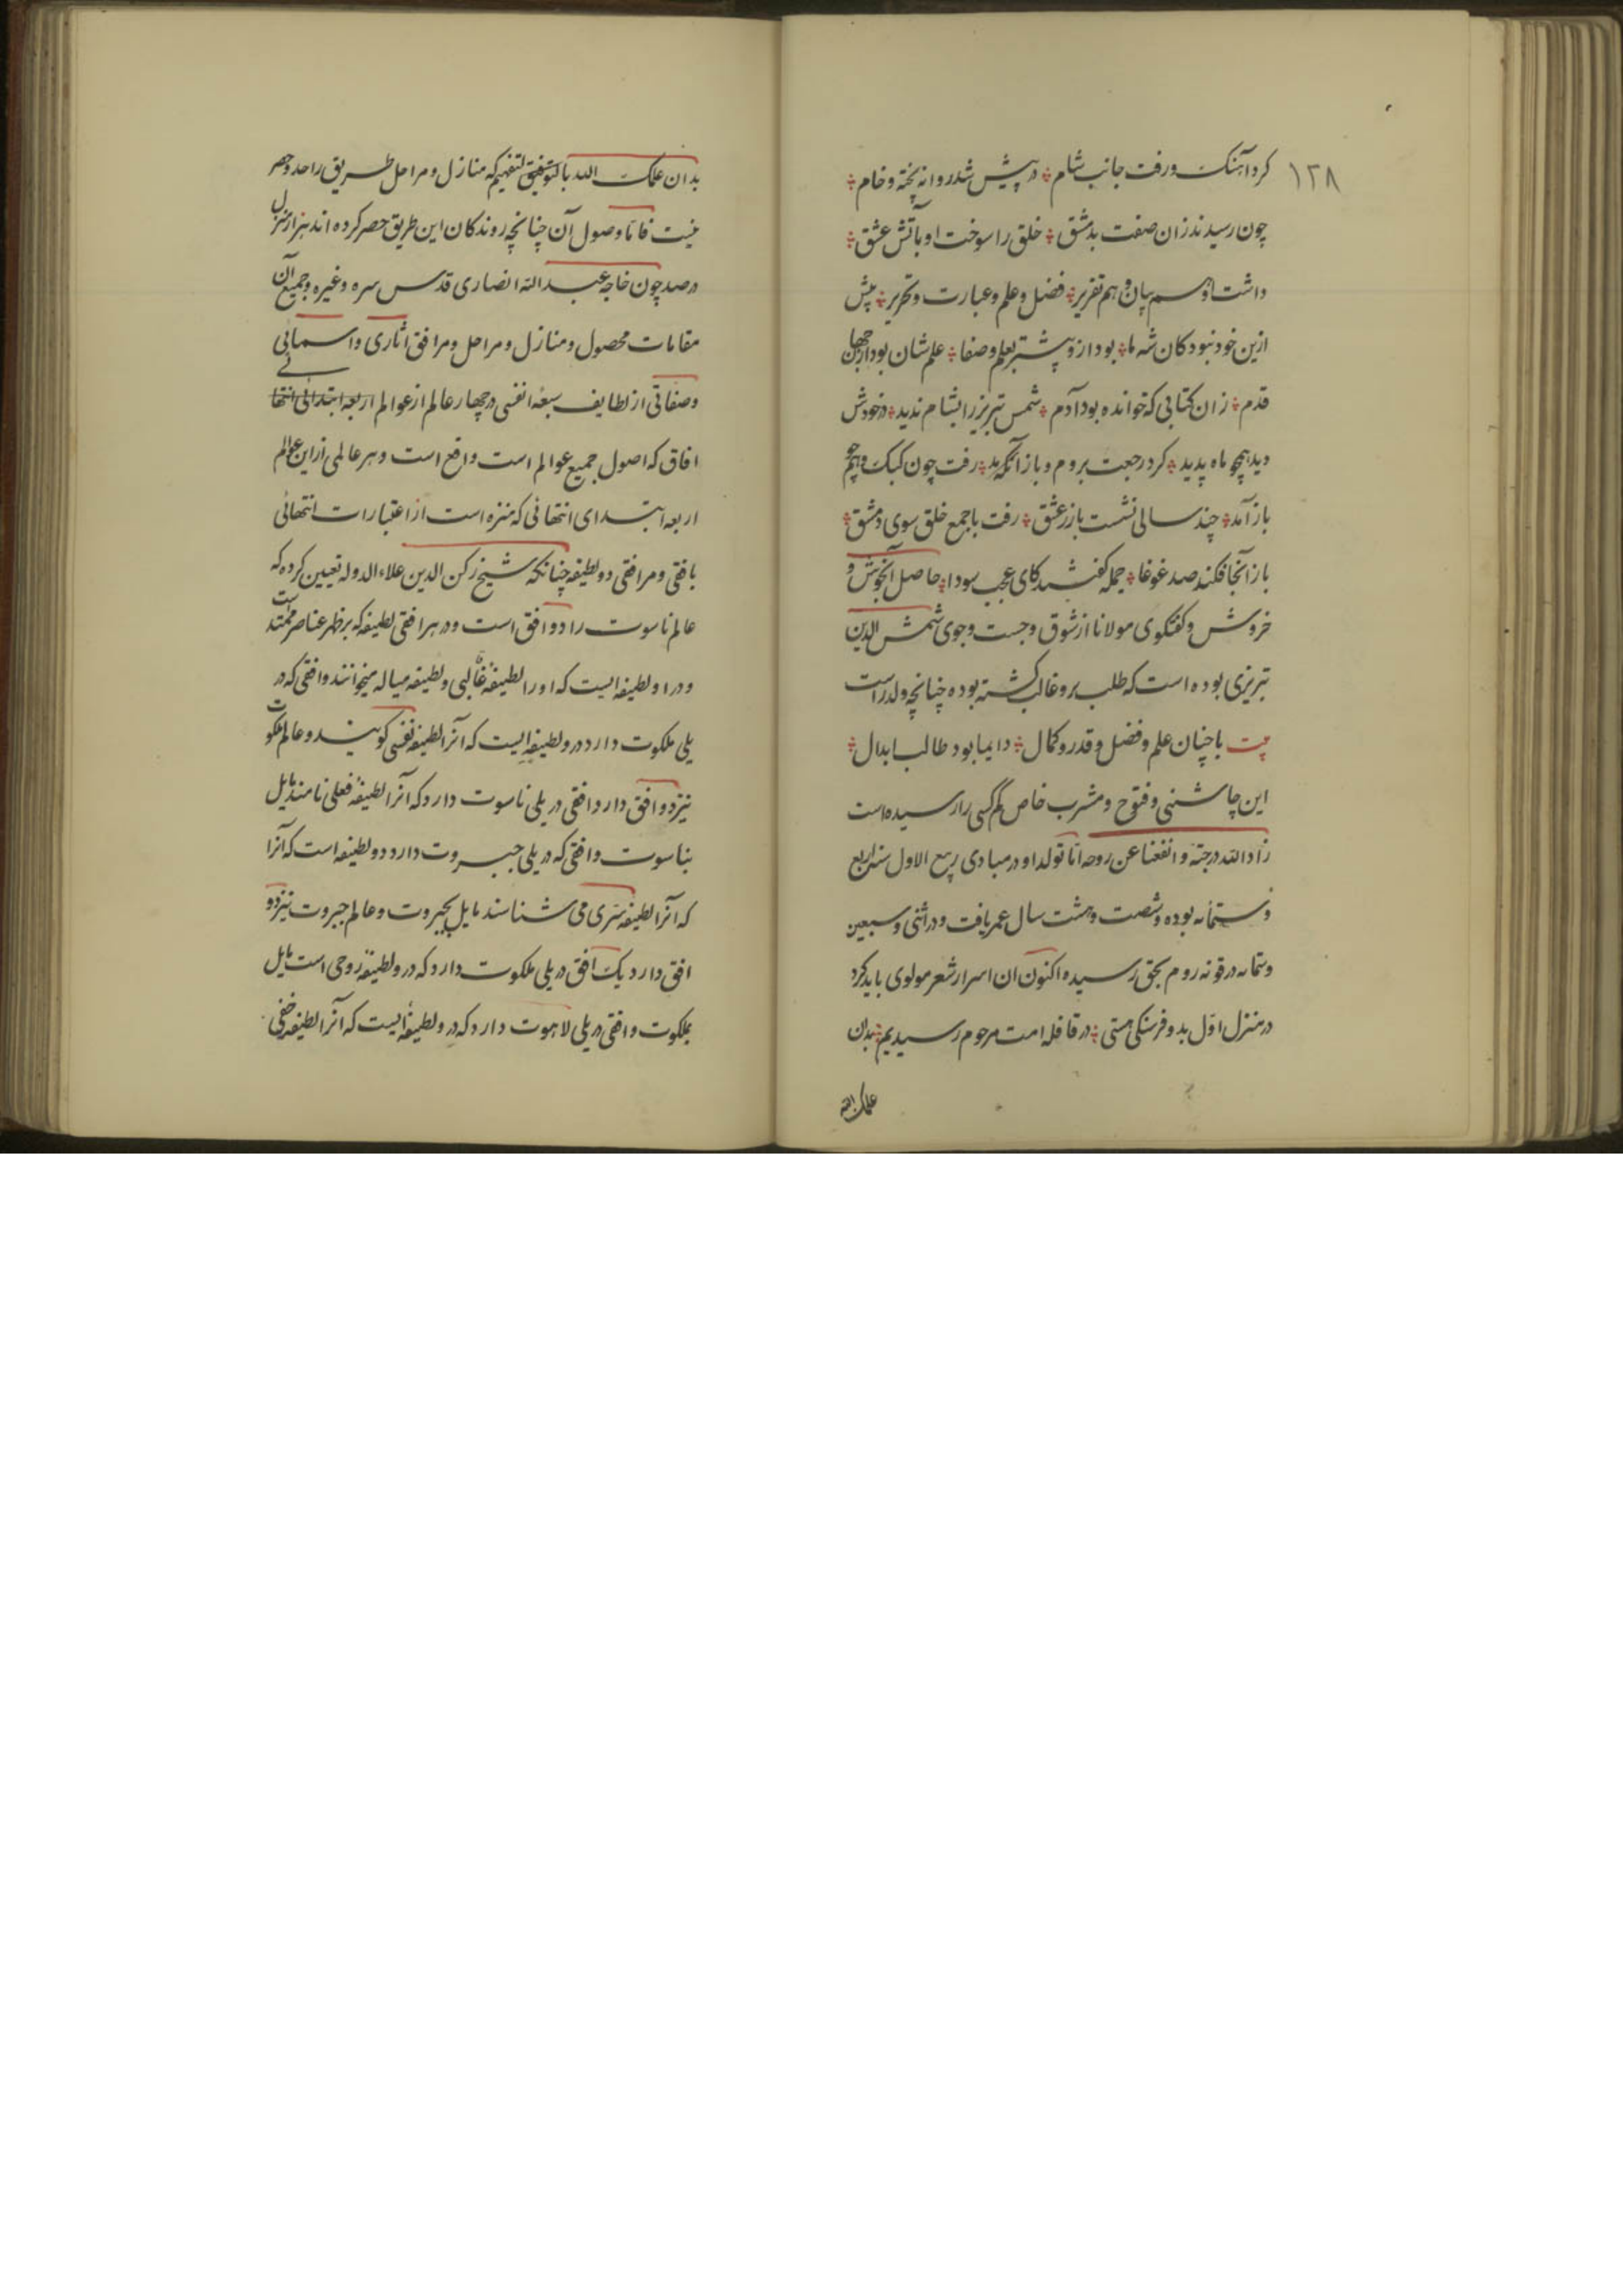 ۱۳۸
کرد آهنگ و رفت جانب شام ؞ در پیش شد روانه پخته و خام ؞
چون رسیدند زان صفت بدمشق ؞ خلق را سوخت او بآتش عشق ؞
داشت او سم بیان و هم تقریر ؞ فضل و علم و عبارت و تحریر ؞ پیش
ازین خود نبود کان شه ما ؞ بود ازو پیشتر بعلم و صفا ؞ علم شان بود از جهان
قدم ؞ زان کتابی که خوانده بود آدم ؞ شمس تبریز را بشام ندید ؞ در خودش
دید همچو ماه پدید ؞ کرد رجعت بروم و باز آمد ؞ رفت چون کبک و همچو
باز آمد ؞ چند سالی نشست باز ز عشق ؞ رفت با جمع خلق سوی دمشق ؞
باز آنجا فکند صد غوغا ؞ جمله گفتند کای عجب سودا ؞ حاصل آنجوش و
خروش و گفتگوی مولانا از شوق و جست و جوی شمس الدین
تبریزی بوده است که طلب برو غالب گشته بوده چنانچه ولد راست
بیت با چنان علم و فضل و قدر و کمال ؞ دایما بود طالب ابدال ؞
این چاشنی و فتوح و مشرب خاص کم کسی را رسیده است
زاد الله درجته و انفعنا عن روحه اما تولد او در مبادی ربیع الاول سنه اربع
و ستمائه بوده و شصت و هشت سال عمر یافت و در اثنی و سبعین
و ستمائه در قونه روم بحق رسیده و اکنون ان اسرار شعر مولوی باید کرد
در منزل اول بدو فرسنگی هستی ؞ در قافله امت مرحوم رسیدیم ؞ بدان
علمک الله
بدان علمک الله بالتوفیق لتفهیم که منازل و مراحل طریق را حد و حصر
نیست فاما وصول آن چنانچه روندکان این طریق حصر کرده اند هزار منزل
در صد چون خاجه عبد الله انصاری قدس سره و غیره و جمیع آن
مقامات محصول و منازل و مراحل و مرافق اثاری و اسمایی
وصفاتی از لطایف سبعه انفسی در چهار عالم از عوالم اربعه ابتدائی انتها
افاق که اصول جمیع عوالم است واقع است و هر عالمی از این عوالم
اربعه ابتدای انتهائی که منزه است از اعتبارات انتهائی
بافقی و مرافقی دو لطیفه چنانکه شیخ رکن الدین علاء الدوله تعیین کرده که
عالم ناسوت را دو افق است و در هر افقی لطیفه که بر ظهر عناصر ممتد است
و در او لطیفه ایست که او را لطیفهٔ قالبی و لطیفه میاله میخوانند و افقی که در
یلی ملکوت دارد در و لطیفه ایست که آنرا لطیفه نفسی گویند و عالم ملکوت
نیز دو افق دارد افقی در یلی ناسوت دارد که آنرا لطیفهٔ فعلی نامند مایل
بناسوت و افقی که در یلی جبروت دارد دو لطیفه است که آنرا
که آنرا لطیفه سری می شناسند مایل بجبروت و عالم جبروت نیز دو
افق دارد یک افق در یلی ملکوت دارد که در و لطیفهٔ روحی است مایل
بملکوت و افقی در یلی لاهوت دارد که در و لطیفهٔ ایست که آنرا لطیفه خفی